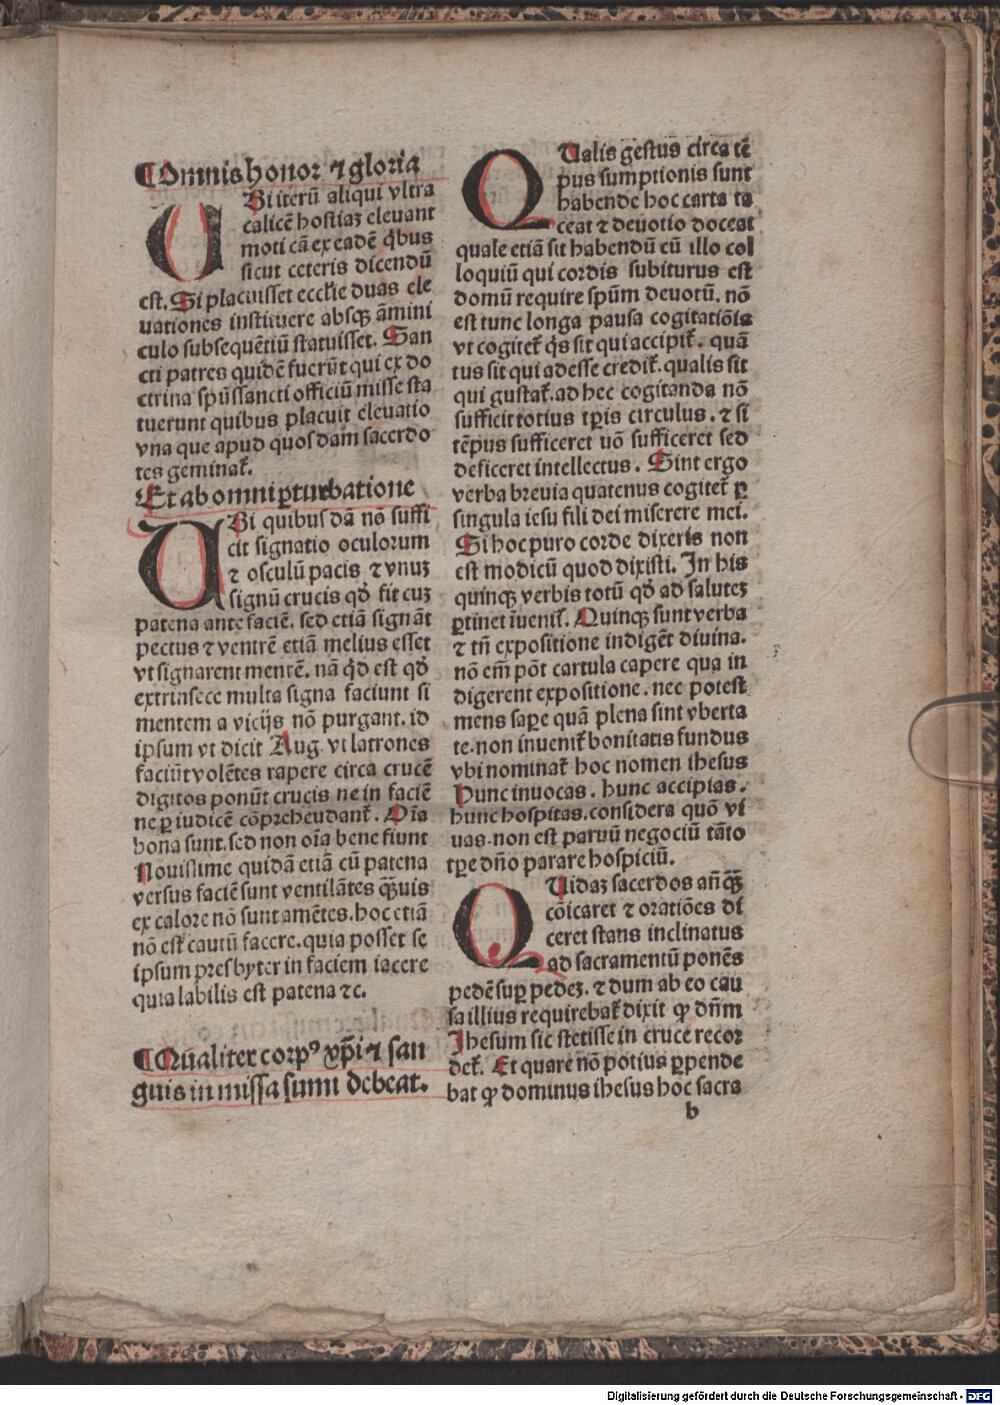 ¶Omnis honor ⁊ gloria
UBi iterū aliqui vltra
calicē hostiaʒ eleuant
moti cā ex eadē q̇bus
sicut ceteris dicendū
est. Si placuisset ecclie duas ele
uationes instituere absqꝫ āmini
culo subsequētiū statuisset. San
cti patres quidē fuerūt qui ex do
ctrina spūssancti officiū misse sta
tuerunt quibus placuit eleuatio
vna que apud quosdam sacerdo
tes geminat᷑.
Et ab omni ꝑturbatione
UBi quibusdā nō suffi
cit signatio oculorum
⁊ osculū pacis ⁊ vnuʒ
signū crucis qd̓ fit cuʒ
patena ante faciē. sed etiā signāt
pectus ⁊ ventrē etiā melius esset
vt signarent mentē. nā q̇d est qd̓
extrinsece multa signa faciunt si
mentem a vicijs nō purgant. id
ipsum vt dicit Aug. vt latrones
faciūt volētes rapere circa crucē
digitos ponūt crucis ne in faciē
ne ꝑ iudicē cōpreheudant᷑. Oīa
bona sunt. sed non oīa bene fiunt
Nouissime quidā etiā cū patena
versus faciē sunt ventilātes qꝫuis
ex calore nō sunt amētes. hoc etiā
nō est cautū facere. quia posset se
ipsum presbyter in faciem iacere
quia labilis est patena ⁊c.
¶Qualiter corpꝰ xp̄i ⁊ san
guis in missa sumi debeat.
QUalis gestus circa tē
pus sumptionis sunt
habende hoc carta ta
ceat ⁊ deuotio doceat
quale etiā sit habendū cū illo col
loquiū qui cordis subiturus est
domū require spūm deuotū. nō
est tunc longa pausa cogitatiōis
vt cogitet᷑ q̇s sit qui accipit᷑. quā
tus sit qui adesse credit᷑. qualis sit
qui gustat᷑. ad hec cogitanda nō
sufficit totius tꝑis circulus. ⁊ si
tēpus sufficeret uō sufficeret sed
deficeret intellectus. Sint ergo
verba breuia quatenus cogitet᷑ ꝑ
singula iesu fili dei miserere mei.
Si hoc puro corde dixeris non
est modicū quod dixisti. In his
quinqꝫ verbis totū qd̓ ad saluteʒ
ꝑtinet īuenit᷑. Quinqꝫ sunt verba
⁊ tn̄ expositione indigēt diuina.
nō em̄ pōt cartula capere qua in
digerent expositione. nec potest
mens sapere quā plena sint vberta
te. non inuenit᷑ bonitatis fundus
vbi nominat᷑ hoc nomen ihesus
Hunc inuocas. hunc accipias.
hunc hospitas. considera quō vi
uas. non est paruū negociū tāto
tꝑe dn̄o parare hospiciū.
QUidaʒ sacerdos an̄qꝫ
cōicaret ⁊ oratiōes di
ceret stans inclinatus
ad sacramentū ponēs
pedē suꝑ pedeʒ. ⁊ dum ab eo cau
sa illius requirebat᷑ dixit ꝙ dn̄m
Jhesum sic stetisse in cruce recor
det᷑. Et quare nō potius ꝑpende
bat ꝙ dominus ihesus hoc sacra
b
Digitalisierung gefördert durch die Deutsche Forschungsgemeinschaft - DFG